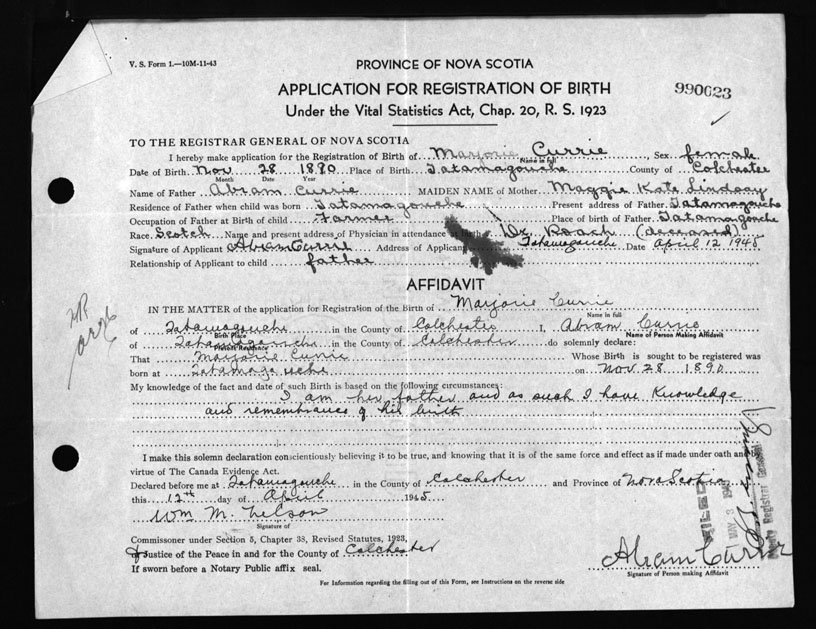 V. S. Form 1.—10M-11-43
PROVINCE OF NOVA SCOTIA
APPLICATION FOR REGISTRATION OF BIRTH
990023
Under the Vital Statistics Act, Chap. 20, R. S. 1923
TO THE REGISTRAR GENERAL OF NOVA SCOTIA
I hereby make application for the Registration of Birth of Marjorie Currie Sex female
Name in full
Date of Birth Nov 28 1890 Place of Birth Tatamagouche County of Colchester
Month Date Year
Name of Father Abram Currie MAIDEN NAME of Mother Maggie Kate Lindsay
Residence of Father when child was born Tatamagouche Present address of Father Tatamagouche
Occupation of Father at Birth of child Farmer Place of birth of Father Tatamagouche
Race Scotch Name and present address of Physician in attendance at Birth Dr. Roach (deceased)
Signature of Applicant Abram Currie Address of Applicant Tatamagouche Date April 12 1945
Relationship of Applicant to child father
AFFIDAVIT
IN THE MATTER of the application for Registration of the Birth of Marjorie Currie
Name in full
of Tatamagouche in the County of Colchester I, Abram Currie
Birth Place Name of Person Making Affidavit
of Tatamagouche in the County of Colchester do solemnly declare:
Present Residence
That Marjorie Currie Whose Birth is sought to be registered was
born at Tatamagouche on Nov 28 1890
My knowledge of the fact and date of such Birth is based on the following circumstances:
I am her father and as such I have Knowledge
and remembrance of his birth
I make this solemn declaration conscientiously believing it to be true, and knowing that it is of the same force and effect as if made under oath and by
virtue of The Canada Evidence Act.
Declared before me at Tatamagouche in the County of Colchester and Province of Nova Scotia
this 12th day of April 1945
Wm M. Nelson
Signature of
Commissioner under Section 5, Chapter 38, Revised Statutes, 1923,
Justice of the Peace in and for the County of Colchester
If sworn before a Notary Public affix seal.
Abram Currie
Signature of Person making Affidavit
For Information regarding the filling out of this Form, see Instructions on the reverse side
FILED
MAY 3
Deputy Registrar General